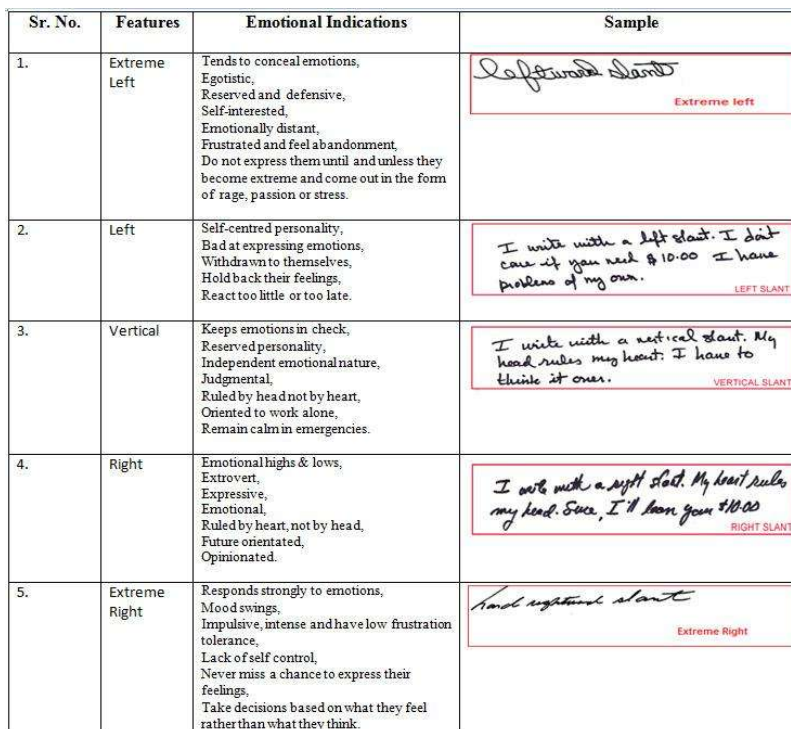 Sr. No. Features Emotional Indications Sample
1. Extreme Left
Tends to conceal emotions,
Egotistic,
Reserved and defensive,
Self-interested,
Emotionally distant,
Frustrated and feel abandonment,
Do not express them until and unless they
become extreme and come out in the form
of rage, passion or stress.
leftward slant
Extreme left
2. Left
Self-centred personality,
Bad at expressing emotions,
Withdrawn to themselves,
Hold back their feelings,
React too little or too late.
I write with a left slant. I don't
care if you need $10.00 I have
problems of my own.
LEFT SLANT
3. Vertical
Keeps emotions in check,
Reserved personality,
Independent emotional nature,
Judgmental,
Ruled by head not by heart,
Oriented to work alone,
Remain calm in emergencies.
I write with a vertical slant. My
head rules my heart. I have to
think it over.
VERTICAL SLANT
4. Right
Emotional highs & lows,
Extrovert,
Expressive,
Emotional,
Ruled by heart, not by head,
Future orientated,
Opinionated.
I write with a right slant. My heart rules
my head. Sure, I'll loan you $10.00
RIGHT SLANT
5. Extreme
Right
Responds strongly to emotions,
Mood swings,
Impulsive, intense and have low frustration
tolerance,
Lack of self control,
Never miss a chance to express their
feelings,
Take decisions based on what they feel
rather than what they think.
hard rightward slant
Extreme Right